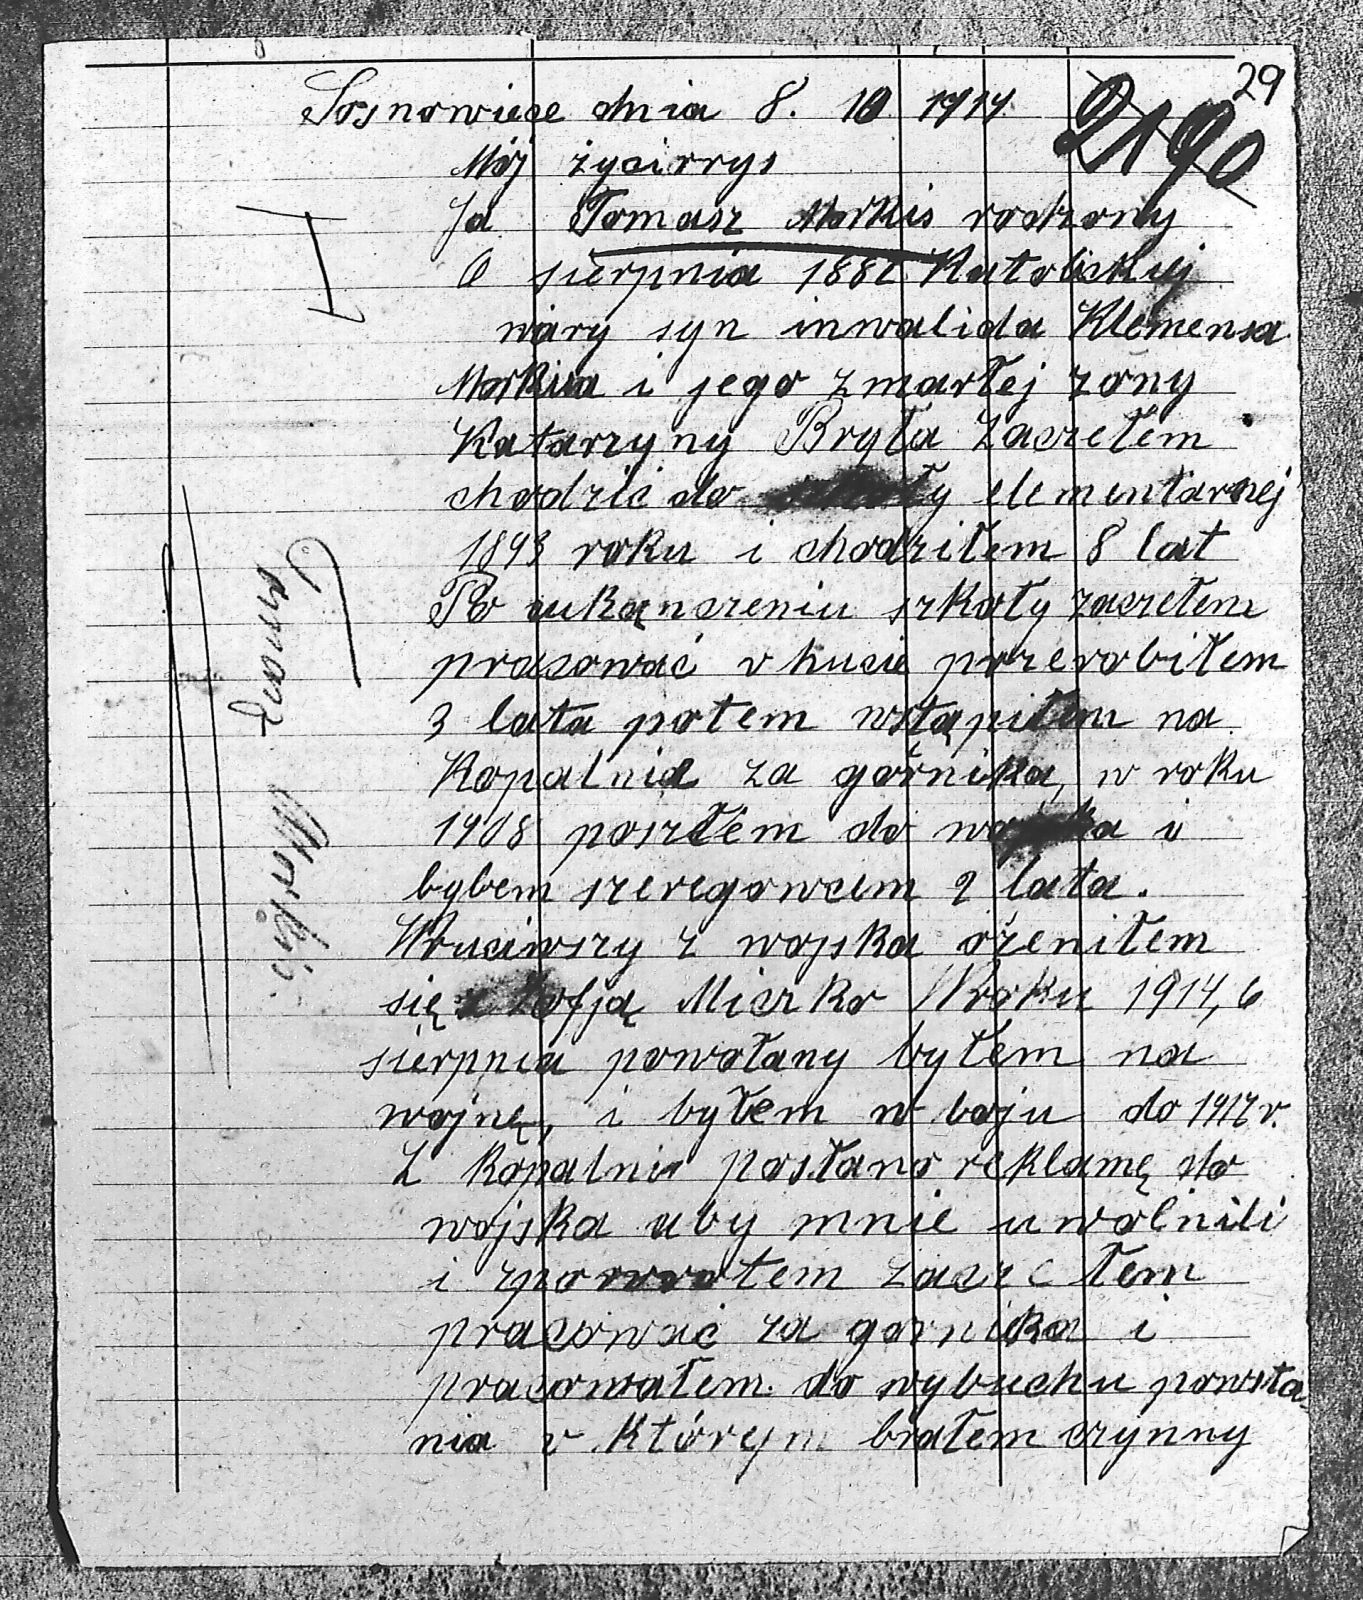 29
2190
Sosnowiece dnia 8. 10 1919
Mój życirrys
Ja Tomasz Morkis rodzony
6 sierpnia 1882 Katolickiej
wiary syn inwalida Klemensa
Morkisa i jego zmarłej żony
Katarzyny Bryła Zaczełem
chodzić do szkoły elementarnej
1893 roku i chodziłem 8 lat
Po ukąnczeniu szkoły zaczełem
pracować v hucie przerobiłem
3 lata potem wstąpiłem na
Kopalnie za górnika, w roku
1908 poszłem do wojska i
byłem szeregowcem 2 lata.
Wruciwszy z wojska ożeniłem
się z Zofją Miczko W roku 1914, 6
sierpnia powołany byłem na
wojnę, i byłem w boju do 1917 r.
Z Kopalnie posłano reklamę do
wojska aby mnie uwolnili
i zpowrotem zaczełem
pracować za gornika i
pracowałem do wybuchu powsta
nia v którym brałem czynny
Morkis